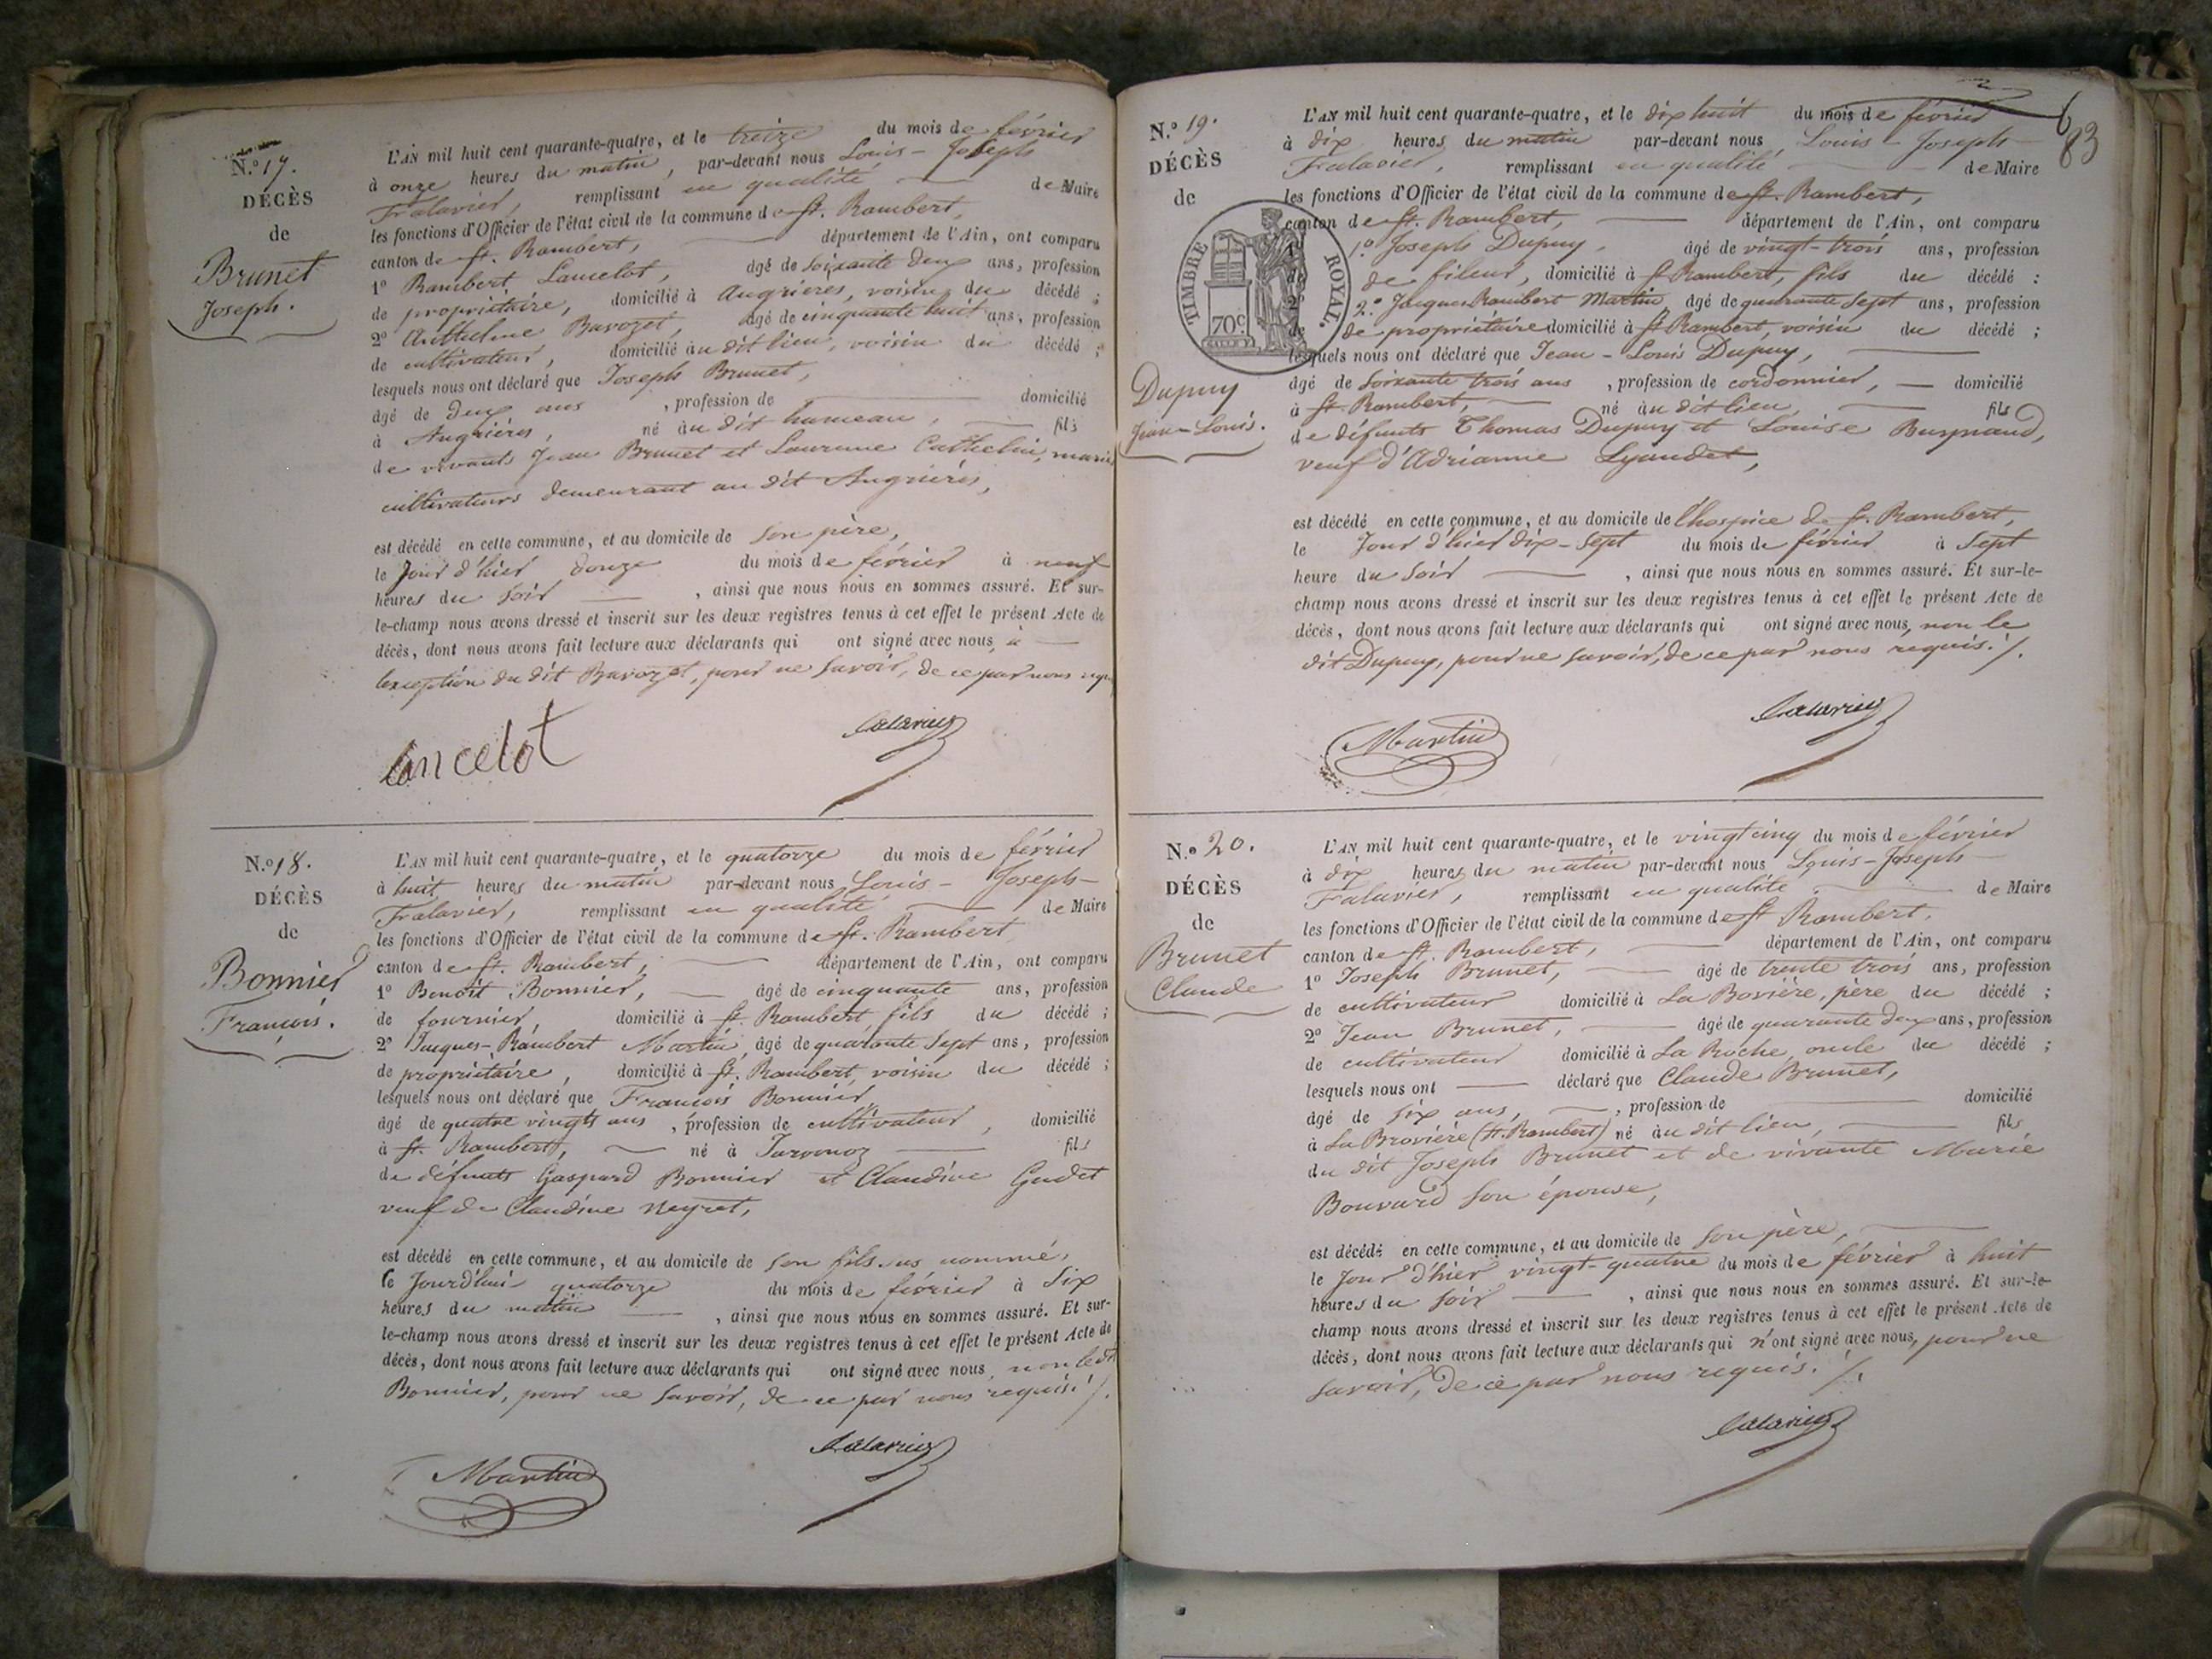 N.º 17.
DÉCÈS
de
Brunet
Joseph.
L'AN mil huit cent quarante-quatre, et le treize du mois de février
à onze heures du matin, par-devant nous Louis-Joseph
Falavier, remplissant en qualité de Maire
les fonctions d'Officier de l'état civil de la commune de St. Rambert,
canton de St. Rambert, département de l'Ain, ont comparu
1º Rambert Lancelot, âgé de soixante deux ans, profession
de propriétaire, domicilié à Angrieres, voisin du décédé ;
2º Anthelme Bavozet, âgé de cinquante huit ans, profession
de cultivateur, domicilié au dit lieu, voisin du décédé ;
lesquels nous ont déclaré que Joseph Brunet,
âgé de deux ans, profession de domicilié
à Angrières, né au dit hameau, fils
de vivants Jean Brunet et Laurence Cathelin, mariés
cultivateurs demeurant au dit Angrières,
est décédé en cette commune, et au domicile de son père,
le jour d'hier douze du mois de février à neuf
heures du soir, ainsi que nous nous en sommes assuré. Et sur-
le-champ nous avons dressé et inscrit sur les deux registres tenus à cet effet le présent Acte de
décès, dont nous avons fait lecture aux déclarants qui ont signé avec nous, à
l'exception du dit Bavozet, pour ne savoir, de ce par nous
Lancelot Falavier
N.º 18.
DÉCÈS
de
Bonnier
François.
L'AN mil huit cent quarante-quatre, et le quatorze du mois de février
à huit heures du matin par-devant nous Louis-Joseph-
Falavier, remplissant en qualité de Maire
les fonctions d'Officier de l'état civil de la commune de St. Rambert
canton de St. Rambert, département de l'Ain, ont comparu
1º Benoît Bonnier, âgé de cinquante ans, profession
de fournier domicilié à St. Rambert fils du décédé ;
2º Jacques-Rambert Martin, âgé de quarante sept ans, profession
de propriétaire, domicilié à St. Rambert, voisin du décédé ;
lesquels nous ont déclaré que François Bonnier,
âgé de quatre vingts ans, profession de cultivateur, domicilié
à St. Rambert, né à fils
de défunts Gaspard Bonnier et Claudine Gudet
veuf de Claudine Neyret,
est décédé en cette commune, et au domicile de son fils sus nommé,
le Jourd'hui quatorze du mois de février à six
heures du matin, ainsi que nous nous en sommes assuré. Et sur-
le-champ nous avons dressé et inscrit sur les deux registres tenus à cet effet le présent Acte de
décès, dont nous avons fait lecture aux déclarants qui ont signé avec nous, non le dit
Bonnier, pour ne savoir, de ce par nous requis ./.
Martin Falavier
83
N.º 19.
DÉCÈS
de
TIMBRE ROYAL.
70c
Dupuy
Jean-Louis.
L'AN mil huit cent quarante-quatre, et le dix huit du mois de février
à dix heures du matin par-devant nous Louis-Joseph-
Falavier, remplissant en qualité de Maire
les fonctions d'Officier de l'état civil de la commune de St. Rambert,
canton de St. Rambert, département de l'Ain, ont comparu
1º Joseph Dupuy, âgé de vingt-trois ans, profession
de fileur, domicilié à St Rambert, fils du décédé :
2º Jacques Rambert Martin, âgé de quarante sept ans, profession
de propriétaire domicilié à St Rambert, voisin du décédé ;
lesquels nous ont déclaré que Jean-Louis Dupuy,
âgé de soixante trois ans, profession de cordonnier, domicilié
à St. Rambert, né au dit lieu, fils
de défunts Thomas Dupuy et Louise
veuf d'Adrianne Lyaudet,
est décédé en cette commune, et au domicile de l'hospice de St. Rambert,
le Jour d'hier dix-sept du mois de février à sept
heure du soir, ainsi que nous nous en sommes assuré. Et sur-le-
champ nous avons dressé et inscrit sur les deux registres tenus à cet effet le présent Acte de
décès, dont nous avons fait lecture aux déclarants qui ont signé avec nous, non le
dit Dupuy, pour ne savoir, de ce par nous requis ./.
Martin Falavier
N.º 20.
DÉCÈS
de
Brunet
Claude
L'AN mil huit cent quarante-quatre, et le vingt cinq du mois de février
à dix heures du matin par-devant nous Louis-Joseph-
Falavier, remplissant en qualité de Maire
les fonctions d'Officier de l'état civil de la commune de St Rambert,
canton de St. Rambert, département de l'Ain, ont comparu
1º Joseph Brunet, âgé de trente trois ans, profession
de cultivateur domicilié à La Bovière, père du décédé ;
2º Jean Brunet, âgé de quarante deux ans, profession
de cultivateur domicilié à La Roche, oncle du décédé ;
lesquels nous ont déclaré que Claude Brunet,
âgé de six ans, profession de domicilié
à La Brovière (St. Rambert) né au dit lieu, fils
du dit Joseph Brunet et de vivante Marie
Bouvard son épouse,
est décédé en cette commune, et au domicile de son père,
le Jour d'hier vingt-quatre du mois de février à huit
heures du soir, ainsi que nous nous en sommes assuré. Et sur-le-
champ nous avons dressé et inscrit sur les deux registres tenus à cet effet le présent Acte de
décès, dont nous avons fait lecture aux déclarants qui n'ont signé avec nous, pour ne
savoir, de ce par nous requis ./.
Falavier